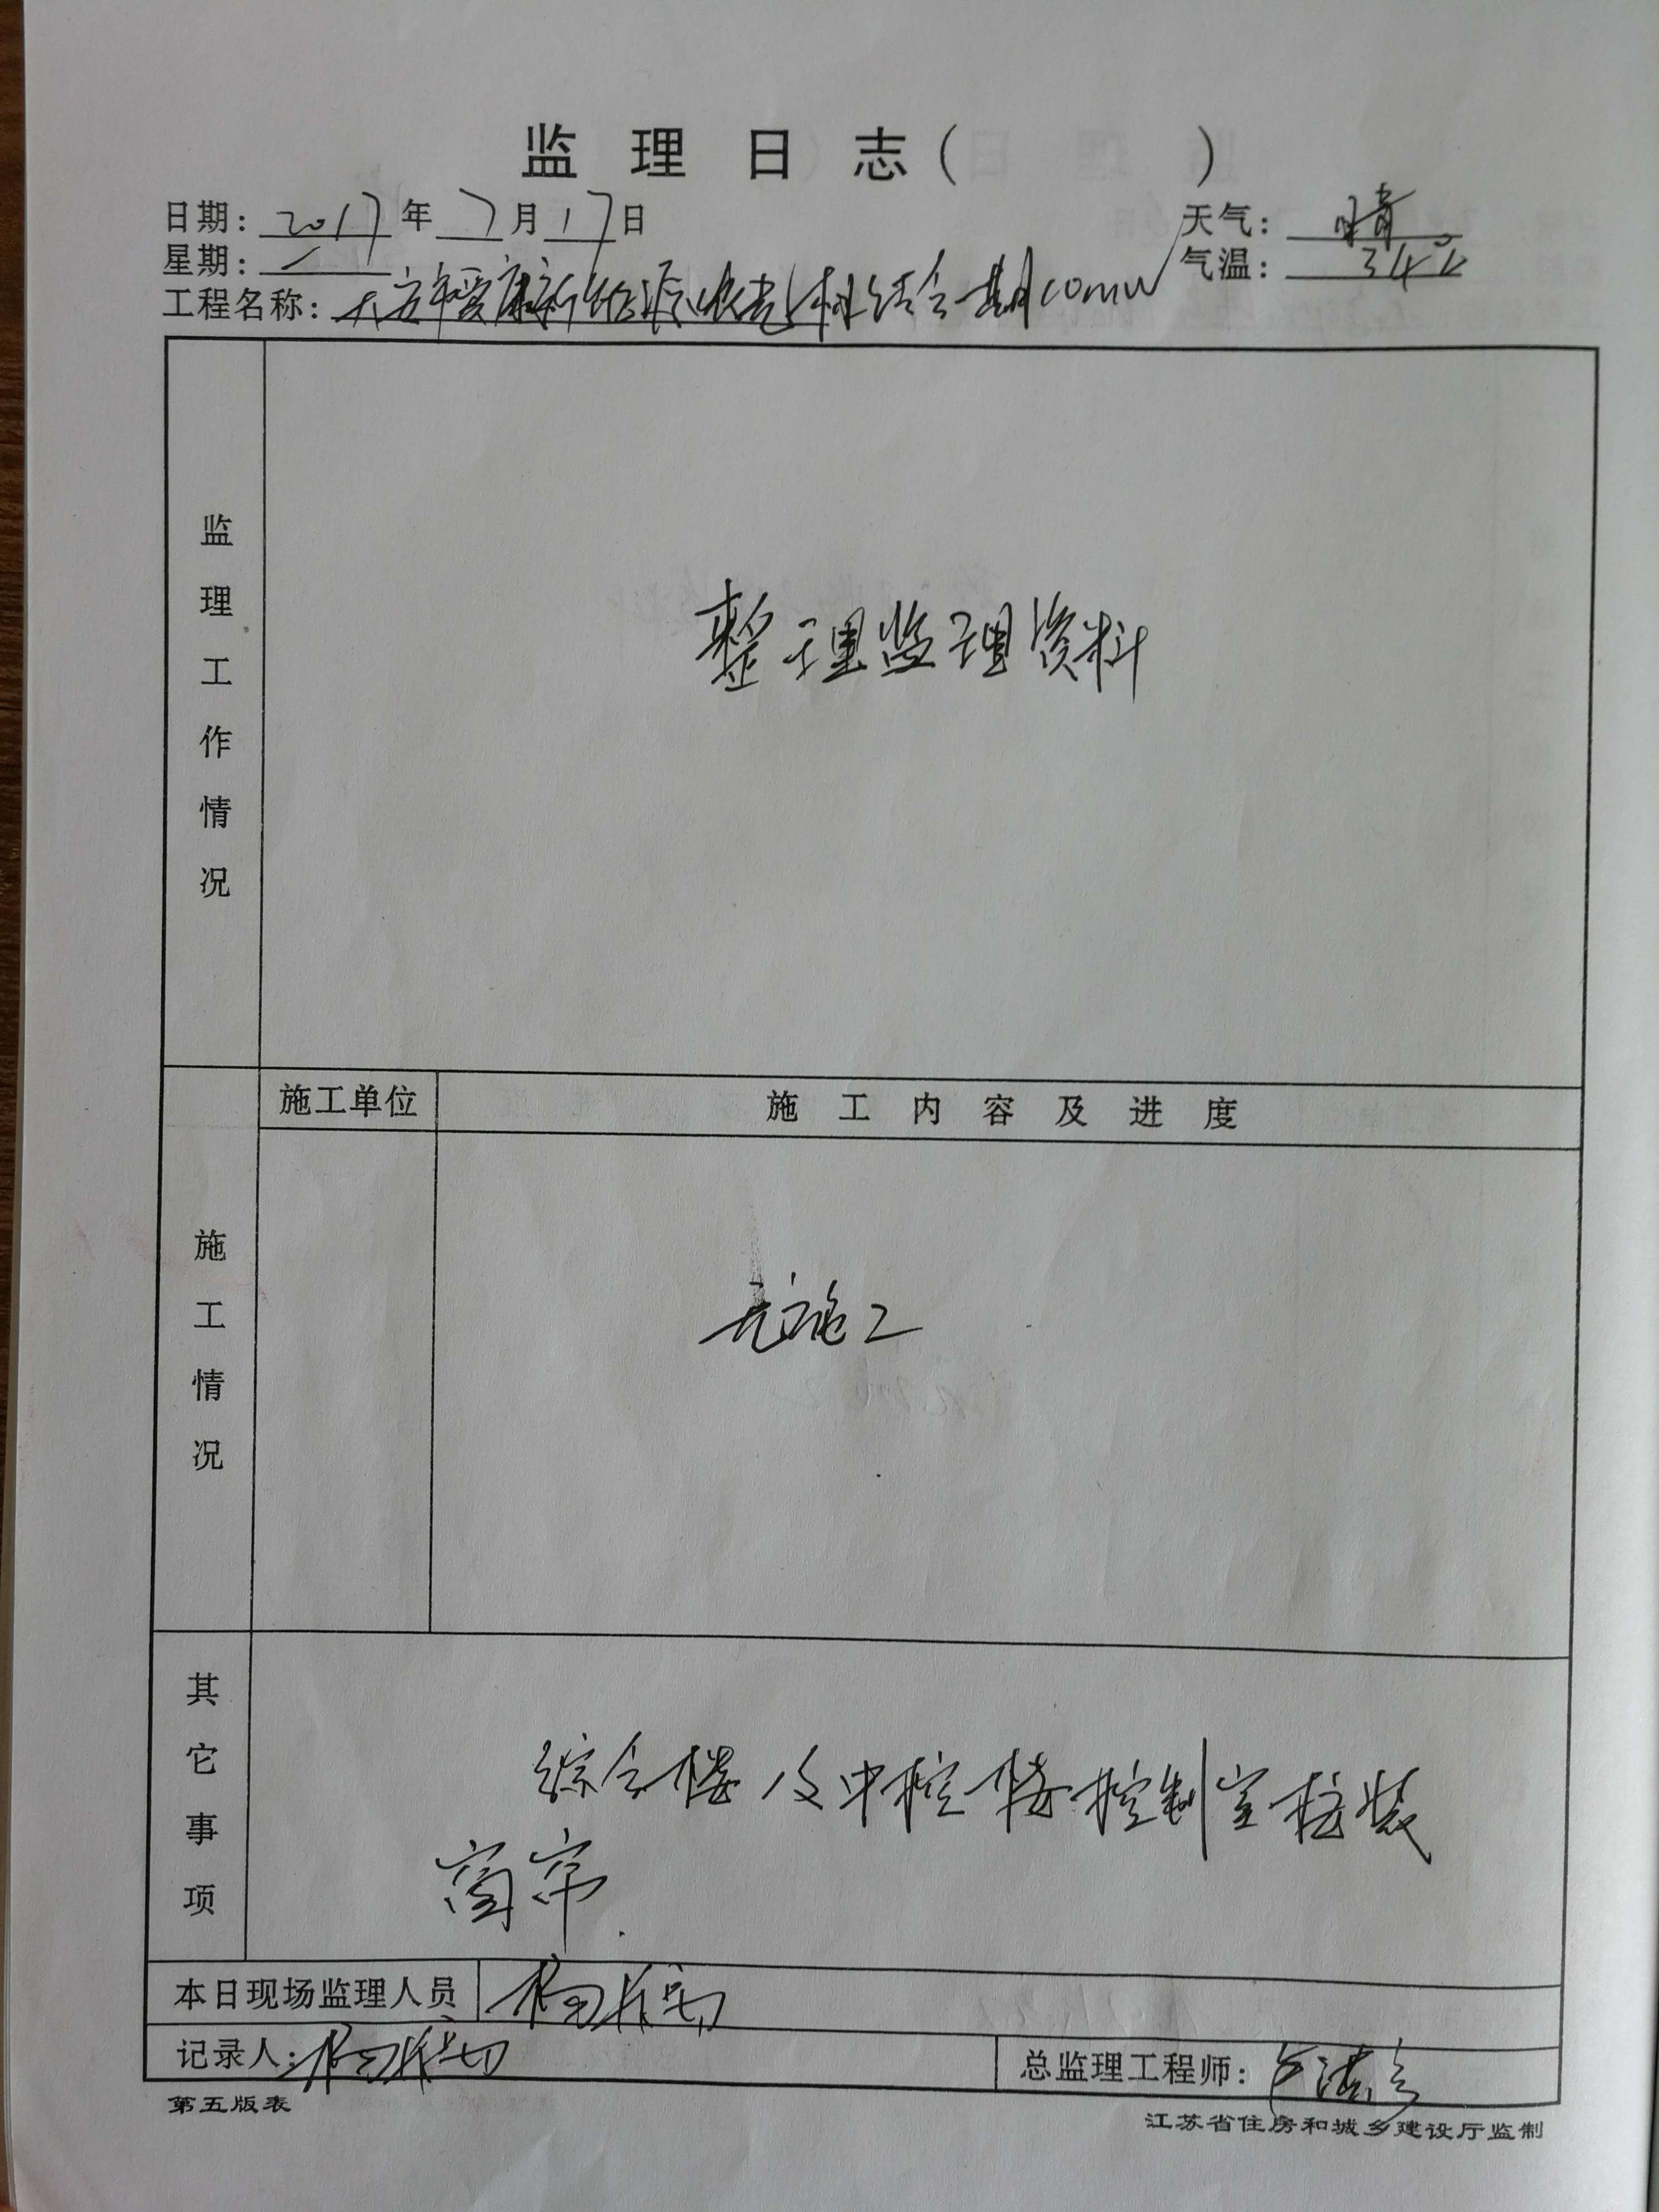 监理日志( )
日期: 2017年7月17日 天气: 晴
星期: 一 气温: 34℃
工程名称: 大方爱康新能源农光林结合一期10MW
监理工作情况
整理监理资料
施工单位 施工内容及进度
施工情况
无施工
其它事项
综合楼及中控楼控制室按装
窗帘.
本日现场监理人员
记录人: 总监理工程师:
第五版表
江苏省住房和城乡建设厅监制